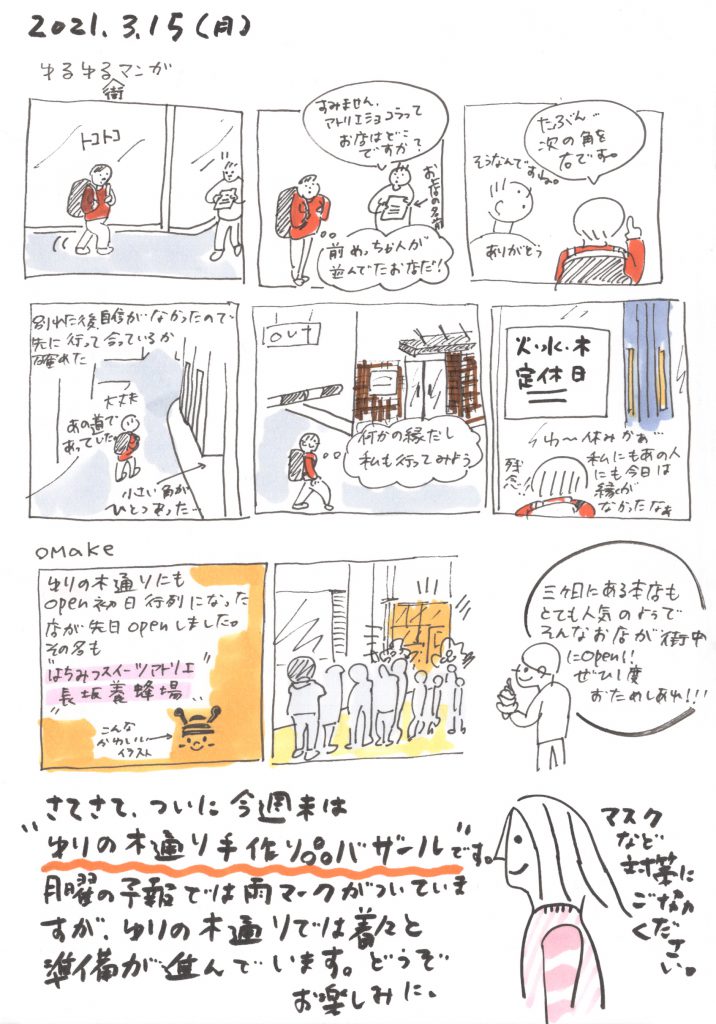 2021.3.15(月)
ゆるゆるマンガ
街
トコトコ
すみません、
アトリエショコラって
お店はどこ
ですか?
お店の名前
前めっちゃ人が
並んでたお店だ!
たぶん…
次の角を
右です。
そうなんですね。
ありがとう
別れた後、自信がなかったので
先に行って合っているか
確めた
大丈夫
あの道で
あっていた
小さい角が
ひとつあった…
out
何かの縁だし
私も行ってみよう
火・水・木
定休日
うわ〜休みかぁ
私にもあの人
にも今日は
縁が
なかったなぁ
残念!!
omake
ゆりの木通りにも
open初日行列になった
店が先日openしました。
その名も
"はちみつスイーツアトリエ
長坂養蜂場"
こんな
かわいい
イラスト
三ヶ日にある本店も
とても人気のようで
そんなお店が街中
にopen!!
ぜひ1度
おためしあれ!!!
さてさて、ついに今週末は
"ゆりの木通り手作り品バザール"です。
月曜の予報では雨マークがついていま
すが、ゆりの木通りでは着々と
準備が進んでいます。どうぞ
お楽しみに。
マスク
など
対策に
ご協力
ください。